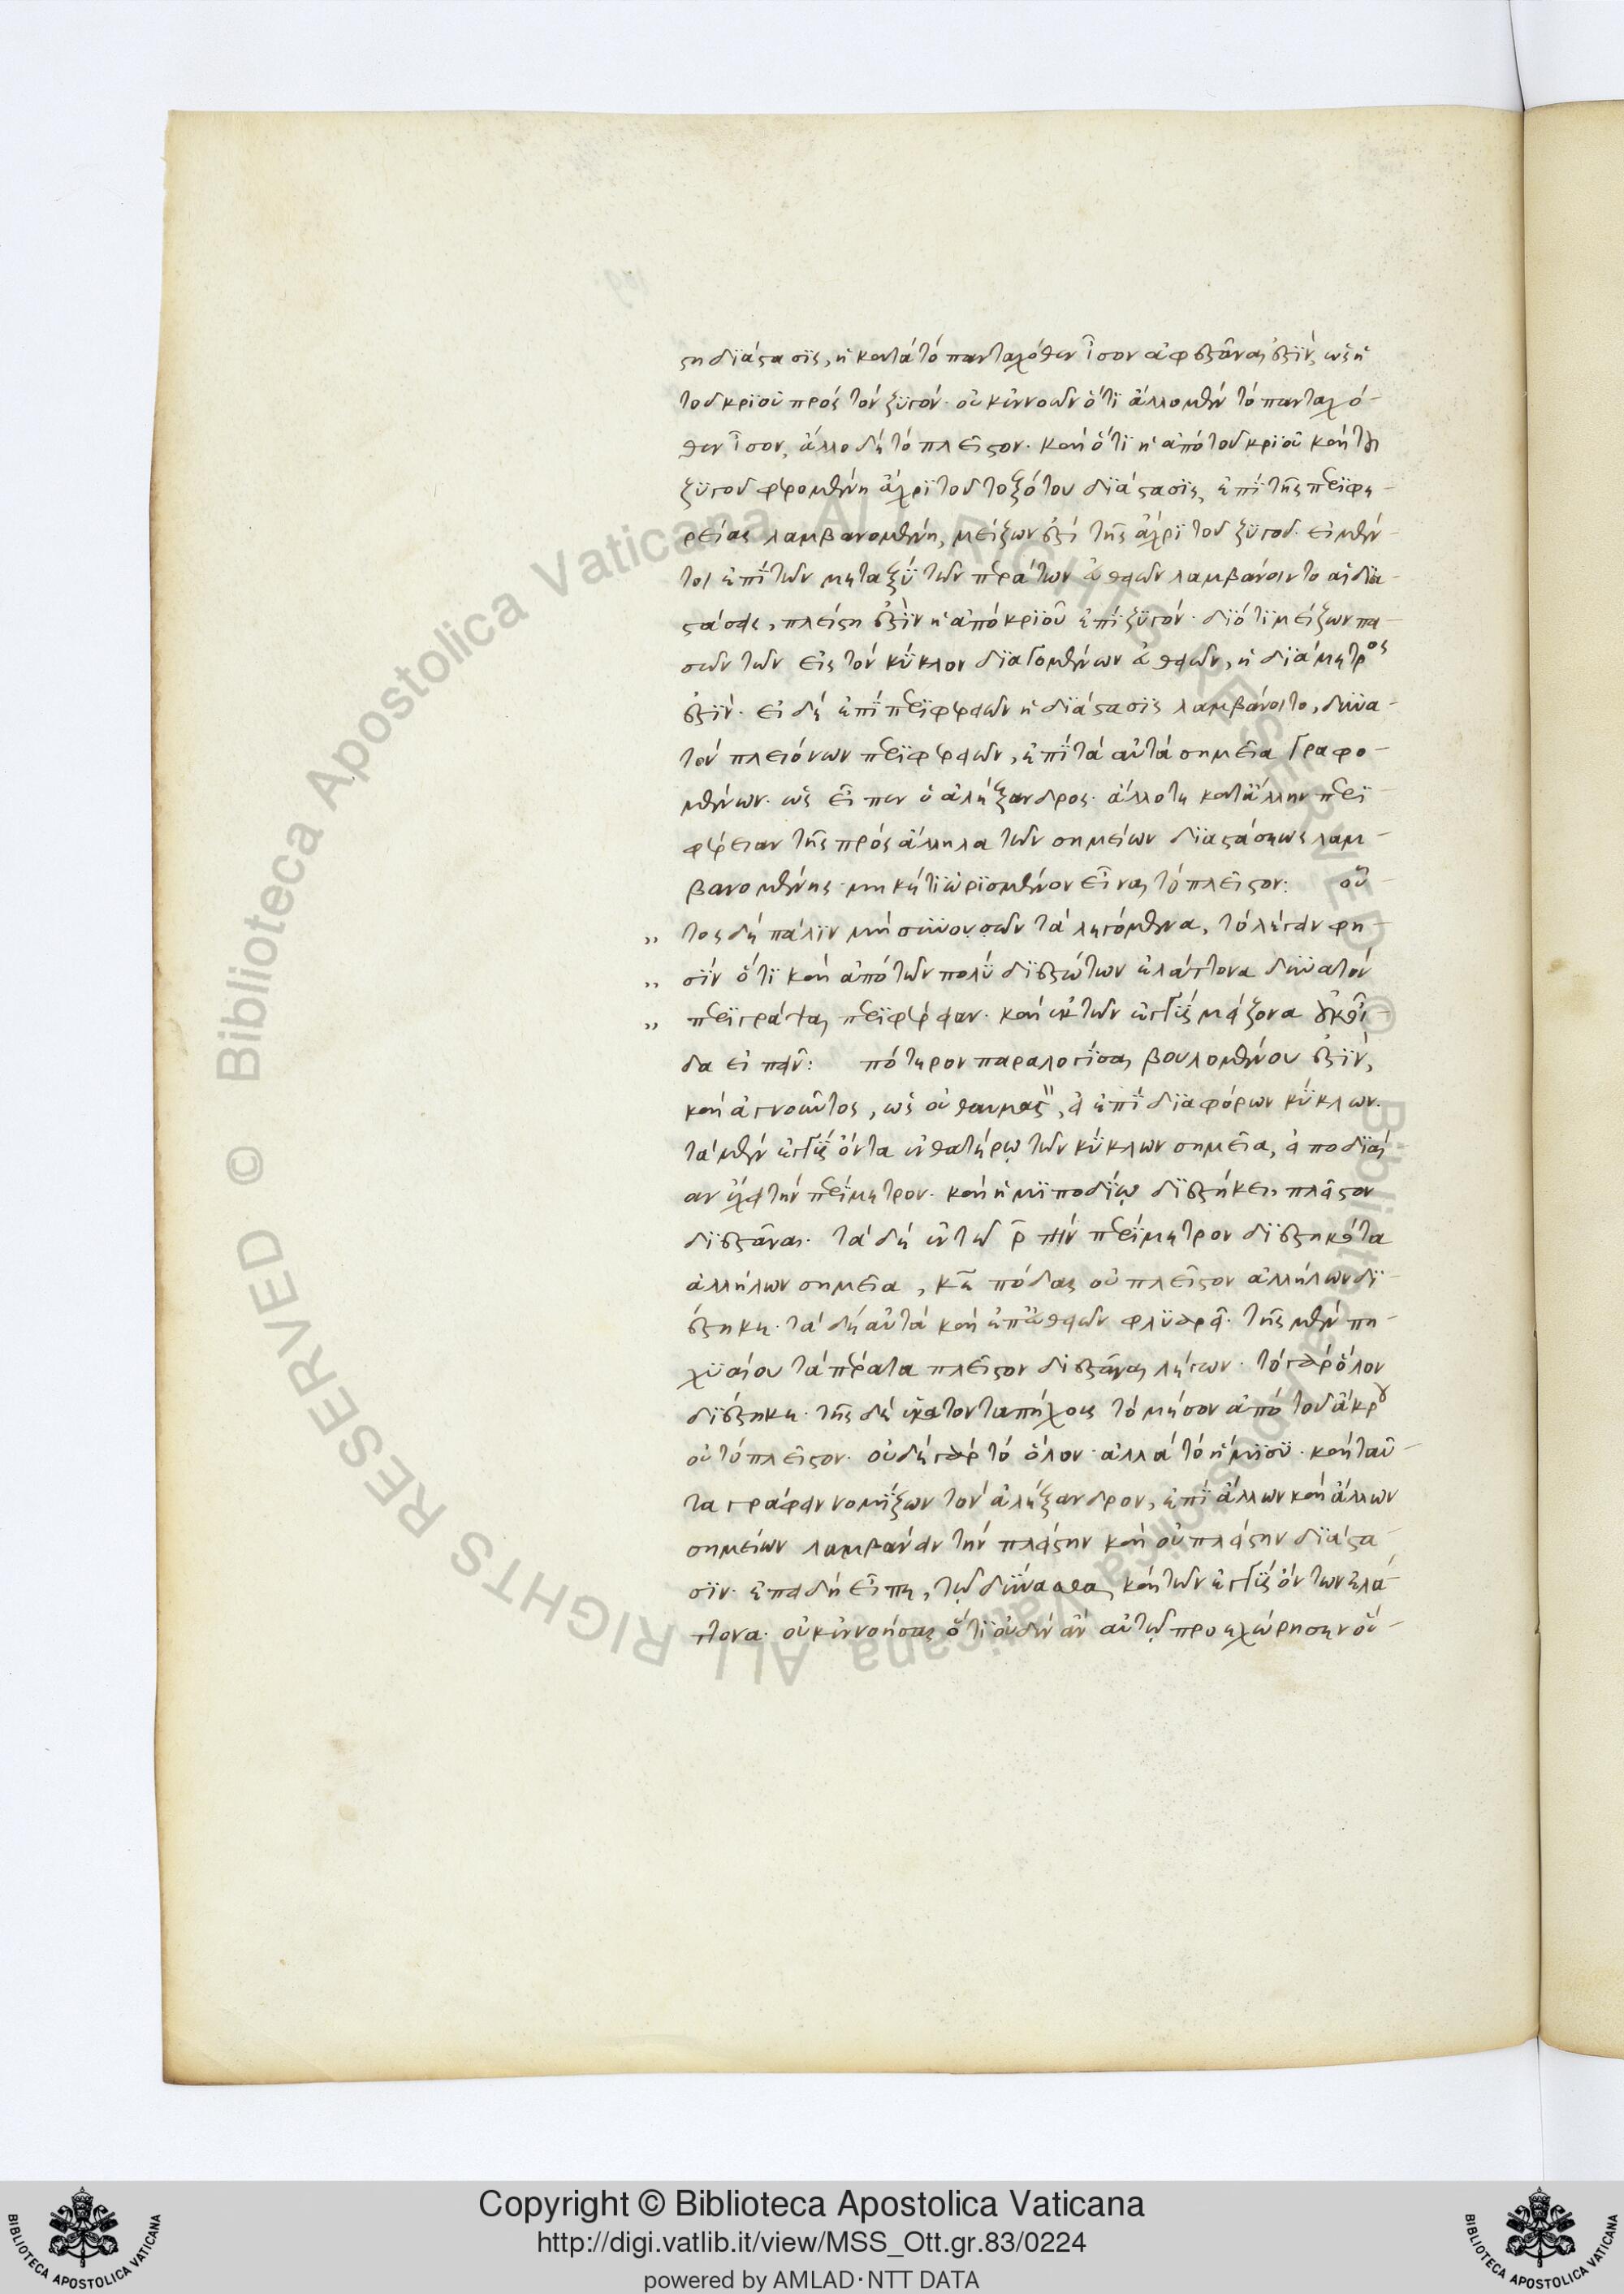 ςη διάςασις, ἡ κατὰ τὸ πανταχόθεν ἴσον ἀφεστᾶναι ἐστίν, ὡς ἡ
τοῦ κριοῦ πρὸς τὸν ζυγόν. οὐκ ἐννοῶν ὅτι ἄλλο μὲν τὸ πανταχό-
θεν ἴσον, ἄλλο δὲ τὸ πλεῖςον. καὶ ὅτι ἡ ἀπὸ τοῦ κριοῦ καὶ τῆ
ζυγοῦ φερομένη ἄχρι τοῦ τοξότου διάςασις, ἐπὶ τῆς περιφε-
ρείας λαμβανομένη, μείζων ἐστὶ τῆς ἄχρι τοῦ ζυγοῦ. εἰ μέν
τοι ἐπὶ τῶν μεταξὺ τῶν περάτων εὐθειῶν λαμβάνοιντο αἱ δια-
ςάσεις, πλείςη ἐστὶν ἡ ἀπὸ κριοῦ ἐπὶ ζυγόν. διότι μείζων πα-
σῶν τῶν εἰς τὸν κύκλον διαγομένων εὐθειῶν, ἡ διάμετρος
ἐστίν. εἰ δὲ ἐπὶ περιφερειῶν ἡ διάςασις λαμβάνοιτο, δυνα-
τὸν πλειόνων περιφερειῶν, ἐπὶ τὰ αὐτὰ σημεῖα γραφο-
μένων. ὡς εἶπεν ὁ ἀλέξανδρος. ἄλλοτε κατ' ἄλλην περι-
φέρειαν τῆς πρὸς ἄλληλα τῶν σημείων διαςάσεως λαμ-
βανομένης. μηκέτι ὡρισμένον εἶναι τὸ πλεῖςον: οὗ-
„ τος δὲ πάλιν μὴ συνιδὼν τὰ λεγόμενα, τὸ λέγειν φη-
„ σὶν ὅτι καὶ ἀπὸ τῶν πολὺ διεστώτων ἐλάττονα δυνατὸν
„ περιγράψαι περιφέρειαν. καὶ ἐκ τῶν ἐγγὺς μείζονα οὐκ οἶ-
δα εἰπεῖν: πότερον παραλογίσαι βουλομένου ἐστίν,
καὶ ἀγνοοῦντος, ὡς οὐ θαυμαστὸν, εἰ ἐπὶ διαφόρων κύκλων.
τὰ μὲν ἐγγὺς ὄντα ἐν θατέρῳ τῶν κύκλων σημεῖα, εἰ ποδιαί-
αν ἔχει τὴν περίμετρον. καὶ ἡμιποδίῳ διεστήκει, πλεῖςον
διεστᾶναι. τὰ δὲ ἐν τῷ ρ̅ τὴν περίμετρον διεστηκότα
ἀλλήλων σημεῖα, κ̅ε̅ πόδας οὐ πλεῖςον ἀλλήλων δι-
έστηκε. τὰ δὲ αὐτὰ καὶ ἐπ' εὐθειῶν φλυαρεῖ. τῆς μὲν πη-
χυαίου τὰ πέρατα πλεῖςον διεστᾶναι λέγων. τὸ γὰρ ὅλον
διέστηκε. τῆς δὲ ἑκατονταπήχους τὸ μέσον ἀπὸ τοῦ ἄκρου
οὐ τὸ πλεῖςον. οὐδὲ γὰρ τὸ ὅλον. ἀλλὰ τὸ ἥμισυ. καὶ ταῦ-
τα γράφειν νομίζων τὸν ἀλέξανδρον, ἐπὶ ἄλλων καὶ ἄλλων
σημείων λαμβάνειν τὴν πλείςην καὶ οὐ πλείςην διάςα-
σιν. ἐπειδὴ εἶπε, τῷ δύνασθαι καὶ τῶν ἐγγὺς ὄντων ἐλά-
ττονα. οὐκ ἐννοήσας ὅτι οὐδὲν ἂν αὐτῷ προεχώρησεν οὔ-
Copyright © Biblioteca Apostolica Vaticana
http://digi.vatlib.it/view/MSS_Ott.gr.83/0224
powered by AMLAD·NTT DATA
BIBLIOTECA APOSTOLICA VATICANA
BIBLIOTECA APOSTOLICA VATICANA
© Biblioteca Apostolica Vaticana ALL RIGHTS RESERVED
© Biblioteca Apostolica Vaticana ALL RIGHTS RESERVED